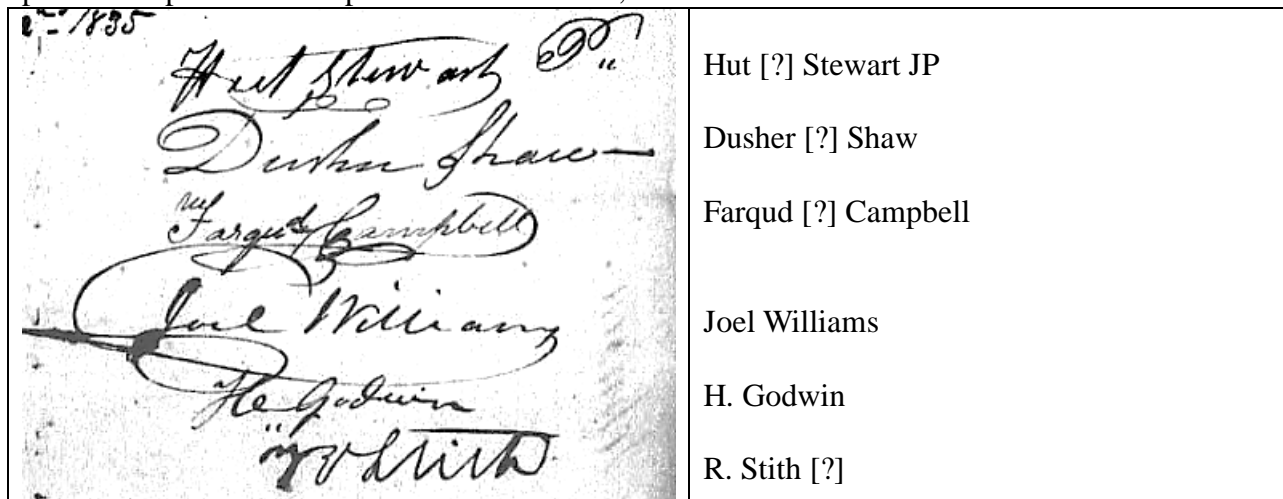 1835
Stewart
Shaw
Farqud Campbell
Joel Williams
Godwin
Hut [?] Stewart JP
Dusher [?] Shaw
Farqud [?] Campbell
Joel Williams
H. Godwin
R. Stith [?]